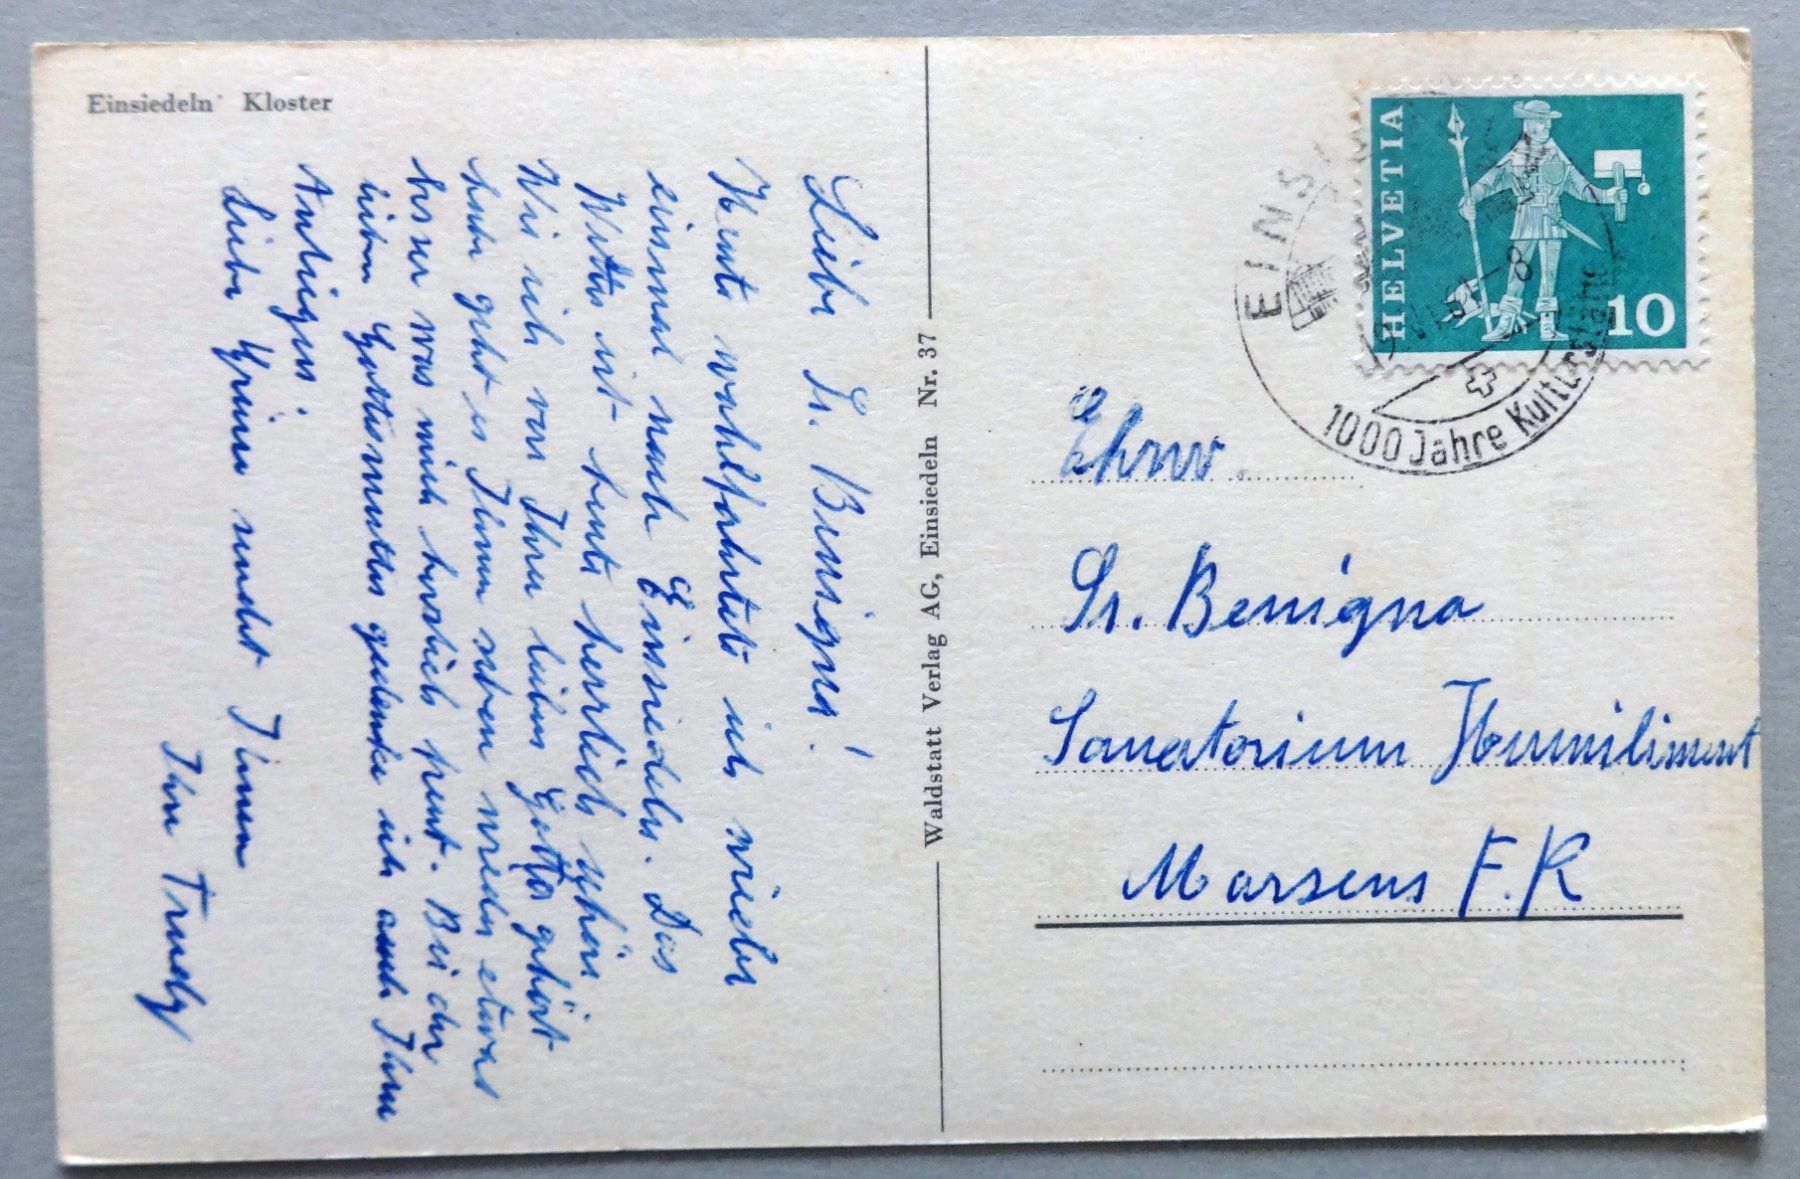 Einsiedeln Kloster
Liebe Sr. Benigna!
Heute wahlfahrtete ich wieder
einmal nach Einsiedeln. Das
Wetter ist heute herrlich schön
Wie ich von Ihrer lieben Gotta gehört
habe geht es Ihnen schon wieder etwas
besser was mich herzlich freut. Bei der
lieben Gottesmutter gedenke ich auch Ihrer
Anliegen.
Liebe Grüsse sendet Ihnen
Ihre Trudy
Waldstatt Verlag AG, Einsiedeln Nr. 37
HELVETIA
10
EINSI
1000 Jahre Kulturstätte
Ehrw.
Sr. Benigna
Sanatorium Humiliment
Marsens F.R